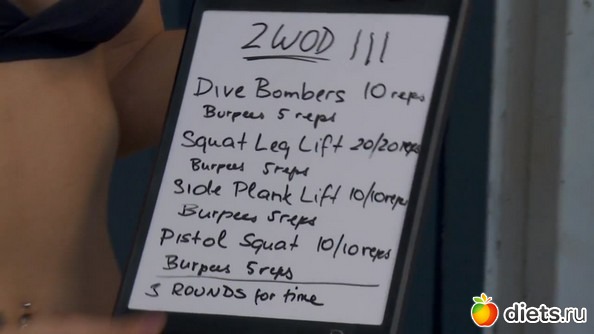 ZWOD |||
Dive Bombers 10 reps
Burpees 5 reps
Squat Leg Lift 20/20 reps
Burpees 5 reps
Side Plank Lift 10/10 reps
Burpees 5 reps
Pistol Squat 10/10 reps
Burpees 5 reps
3 ROUNDS for time
diets.ru